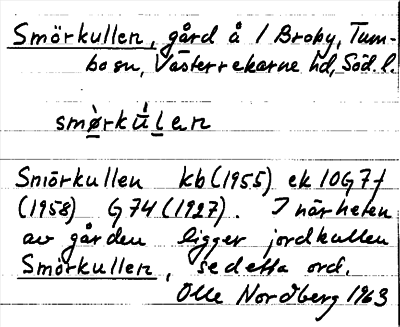 Smörkullen, gård å / Broby, Tum-
bo sn, Västerrekarne hd, Söd. l.
smø̀rkúlen
Smörkullen kb (1955) ek 10G7f
(1958) G74 (1927). I närheten
av gården ligger jordkullen
Smörkullen, se detta ord.
Olle Nordberg 1963